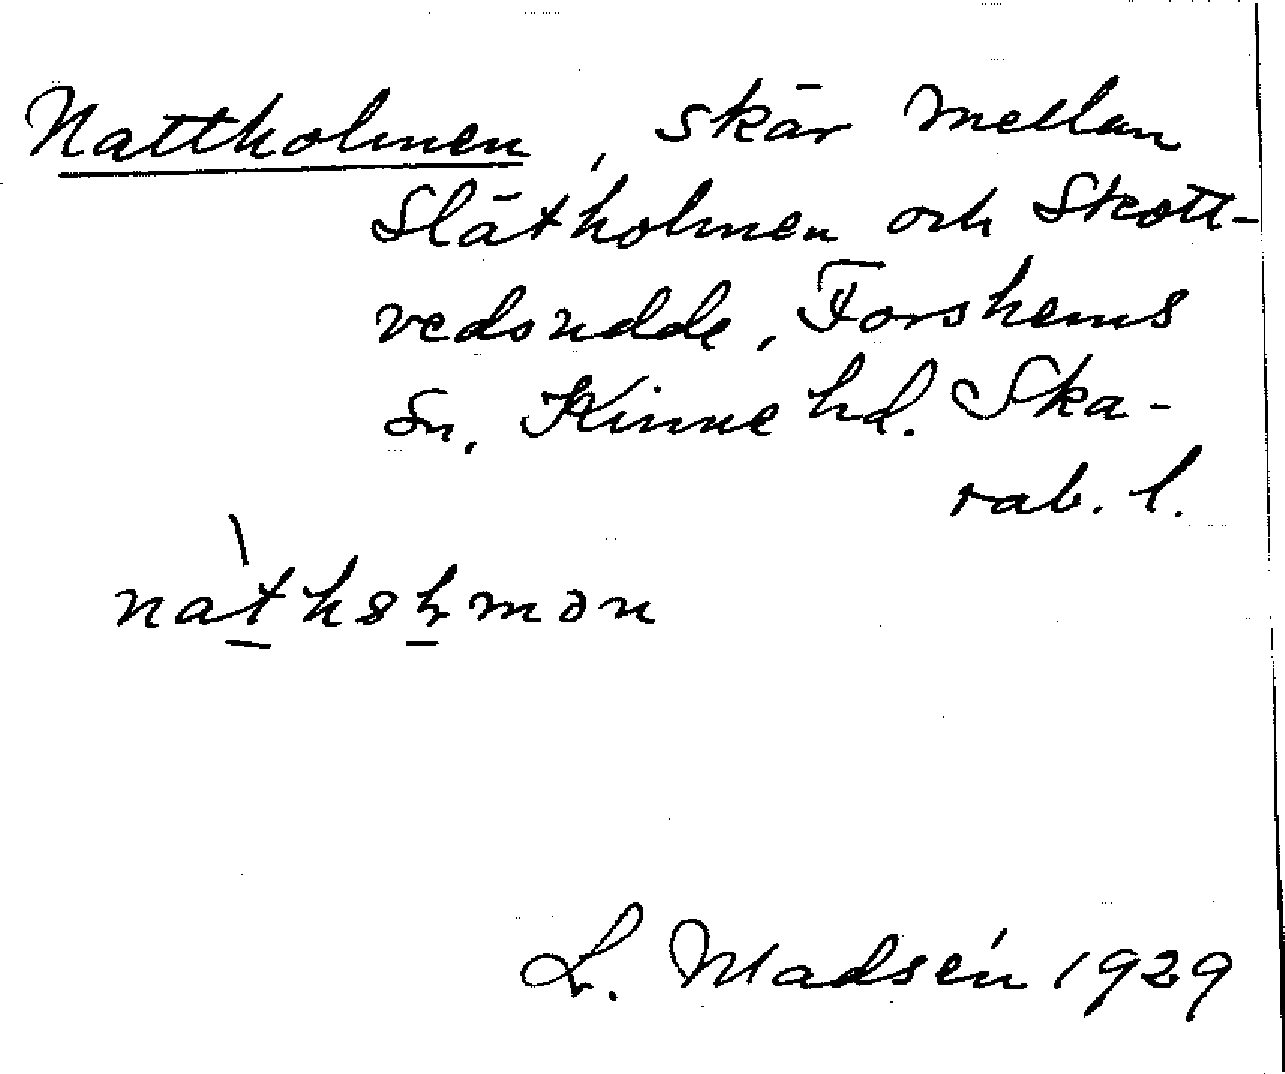 Nattholmen, skär mellan
Slätholmen och Skott-
vedsudde, Forshems
sn, Kinne hd. Ska-
rab. l.
L. Madsén 1929